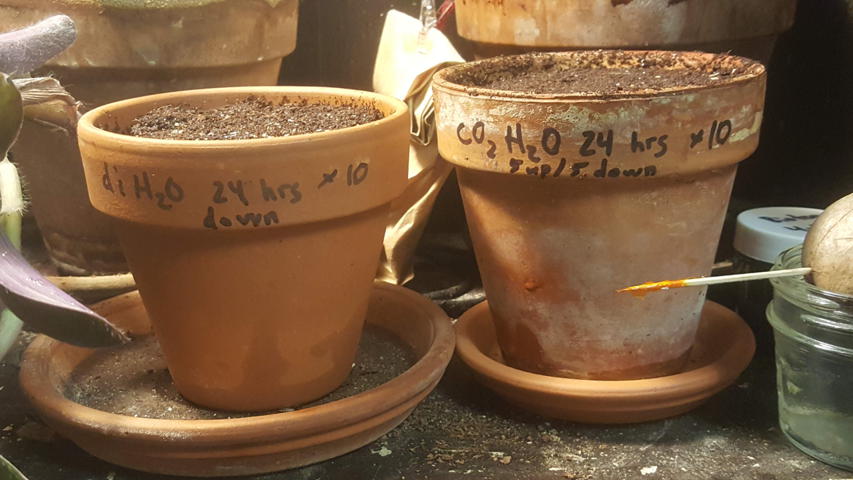 di H₂O 24 hrs x 10
down
CO₂ H₂O 24 hrs x10
5 up/5 down